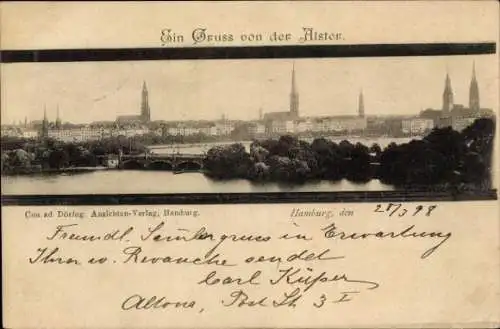 Ein Gruss von der Alster.
Con ad Döring, Ansichten-Verlag, Hamburg.
Hamburg, den 28/3 98
Freundl. Sammlergruss in Erwartung
Ihrer w. Revanche sendet
Carl Küper
Altona, Post Str 3 I